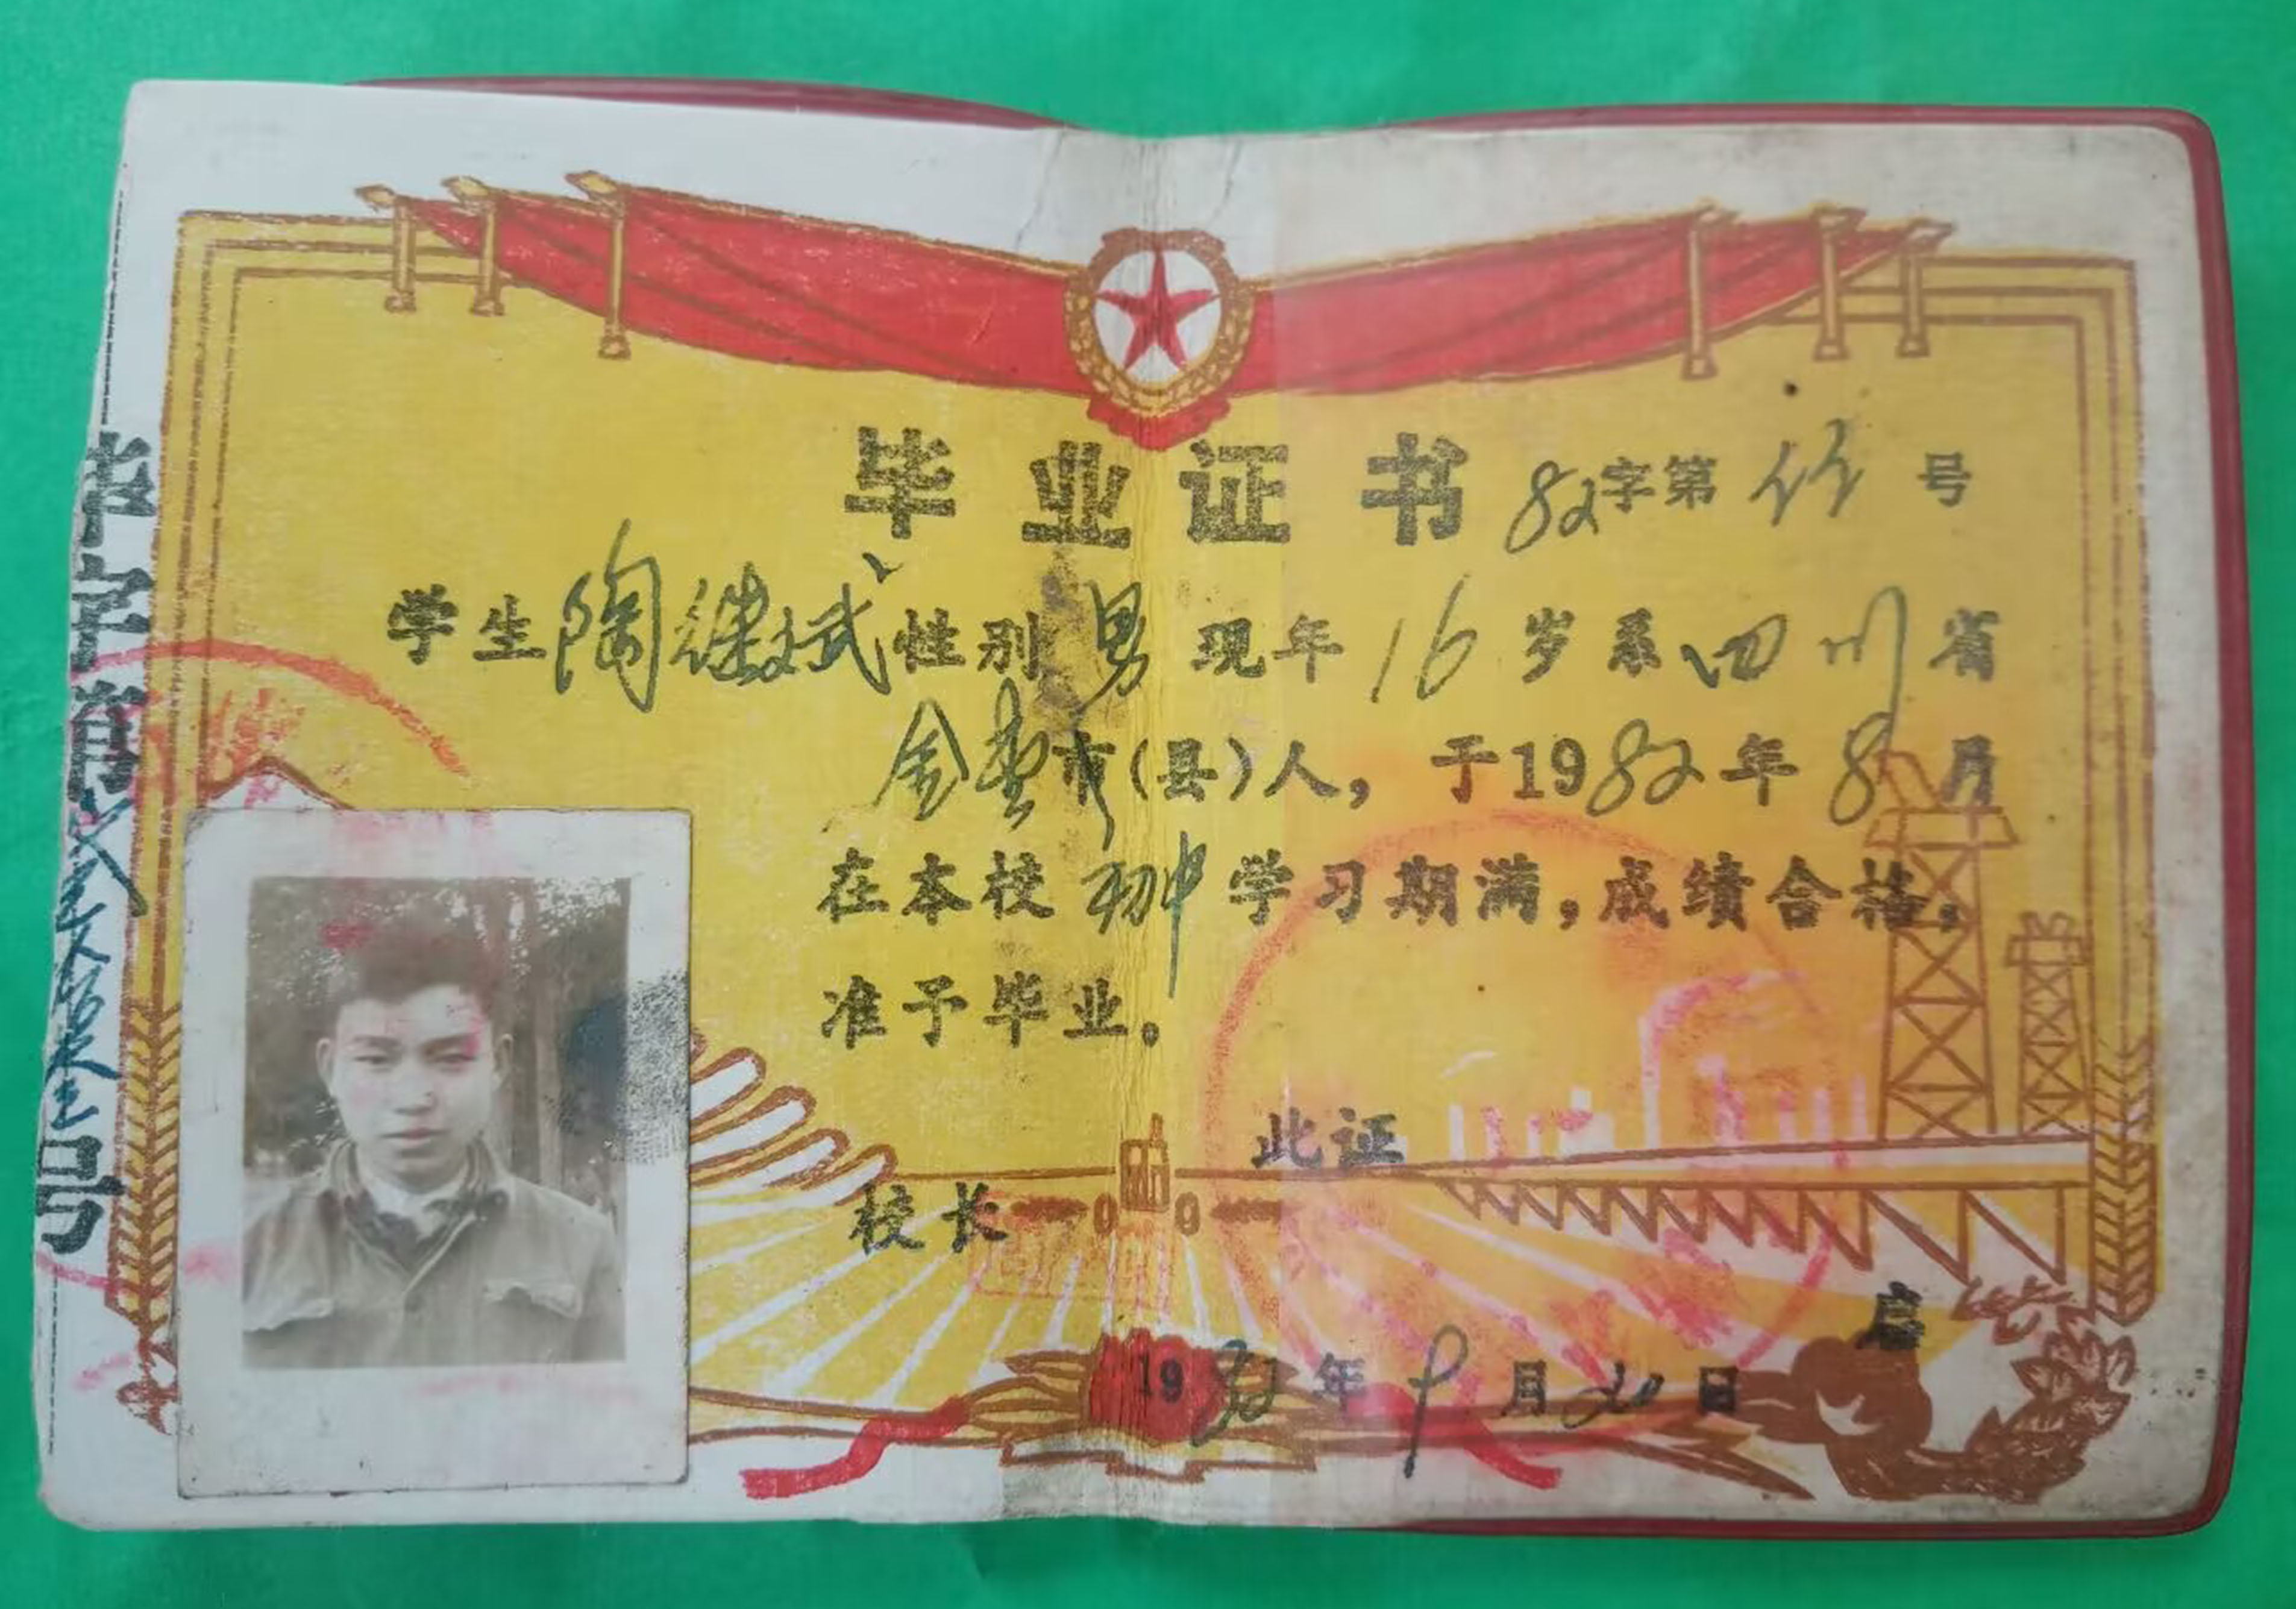 毕业证书 82字第 号
学生陶继斌性别男 现年16岁系四川省
金堂市(县)人，于1982年8月
在本校初中学习期满，成绩合格，
准予毕业。
此证
校长
1982年9月20日
号